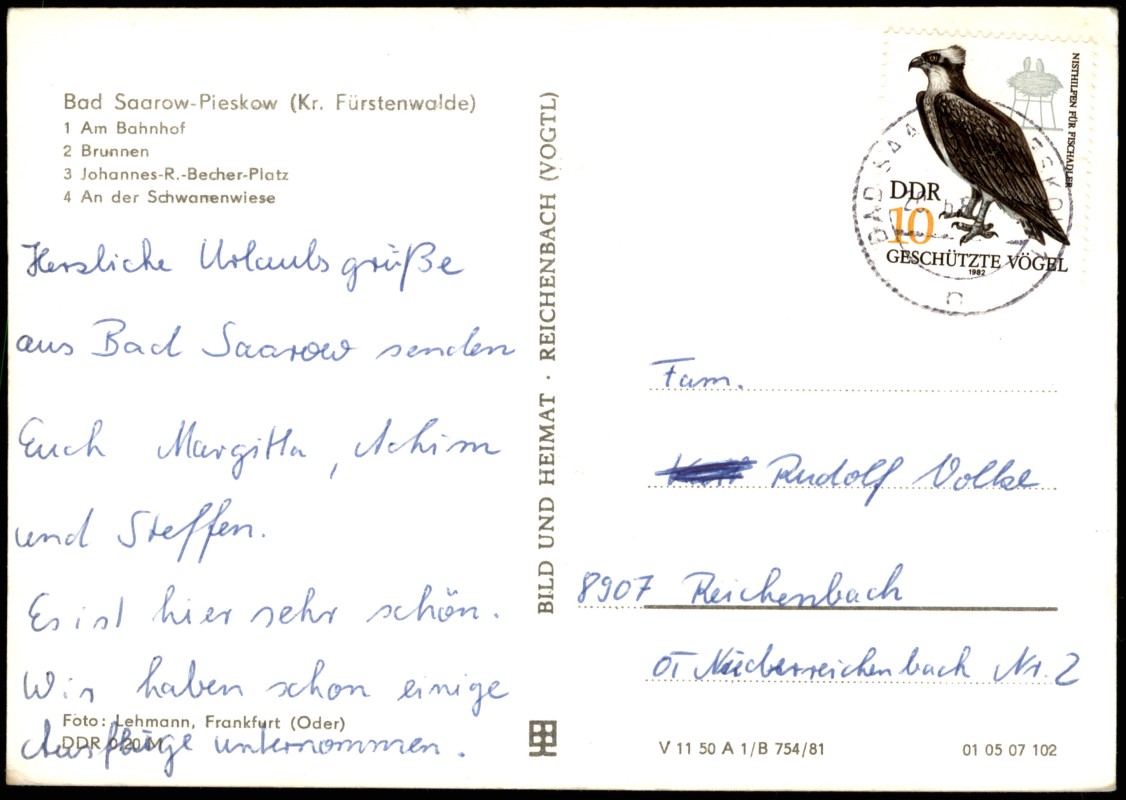 Bad Saarow-Pieskow (Kr. Fürstenwalde)
1 Am Bahnhof
2 Brunnen
3 Johannes-R.-Becher-Platz
4 An der Schwanenwiese
Herzliche Urlaubsgrüße
aus Bad Saarow senden
Euch Margitta, Achim
und Steffen.
Es ist hier sehr schön.
Wir haben schon einige
Ausflüge unternommen.
Foto: Lehmann, Frankfurt (Oder)
DDR 0,20 M
BILD UND HEIMAT · REICHENBACH (VOGTL)
NISTHILFEN FÜR FISCHADLER
DDR
10
GESCHÜTZTE VÖGEL
1982
BAD SAAROW-PIESKOW
n
Fam.
Rudolf Volke
8907 Reichenbach
OT Niederreichenbach Nr. 2
V 11 50 A 1/B 754/81
01 05 07 102